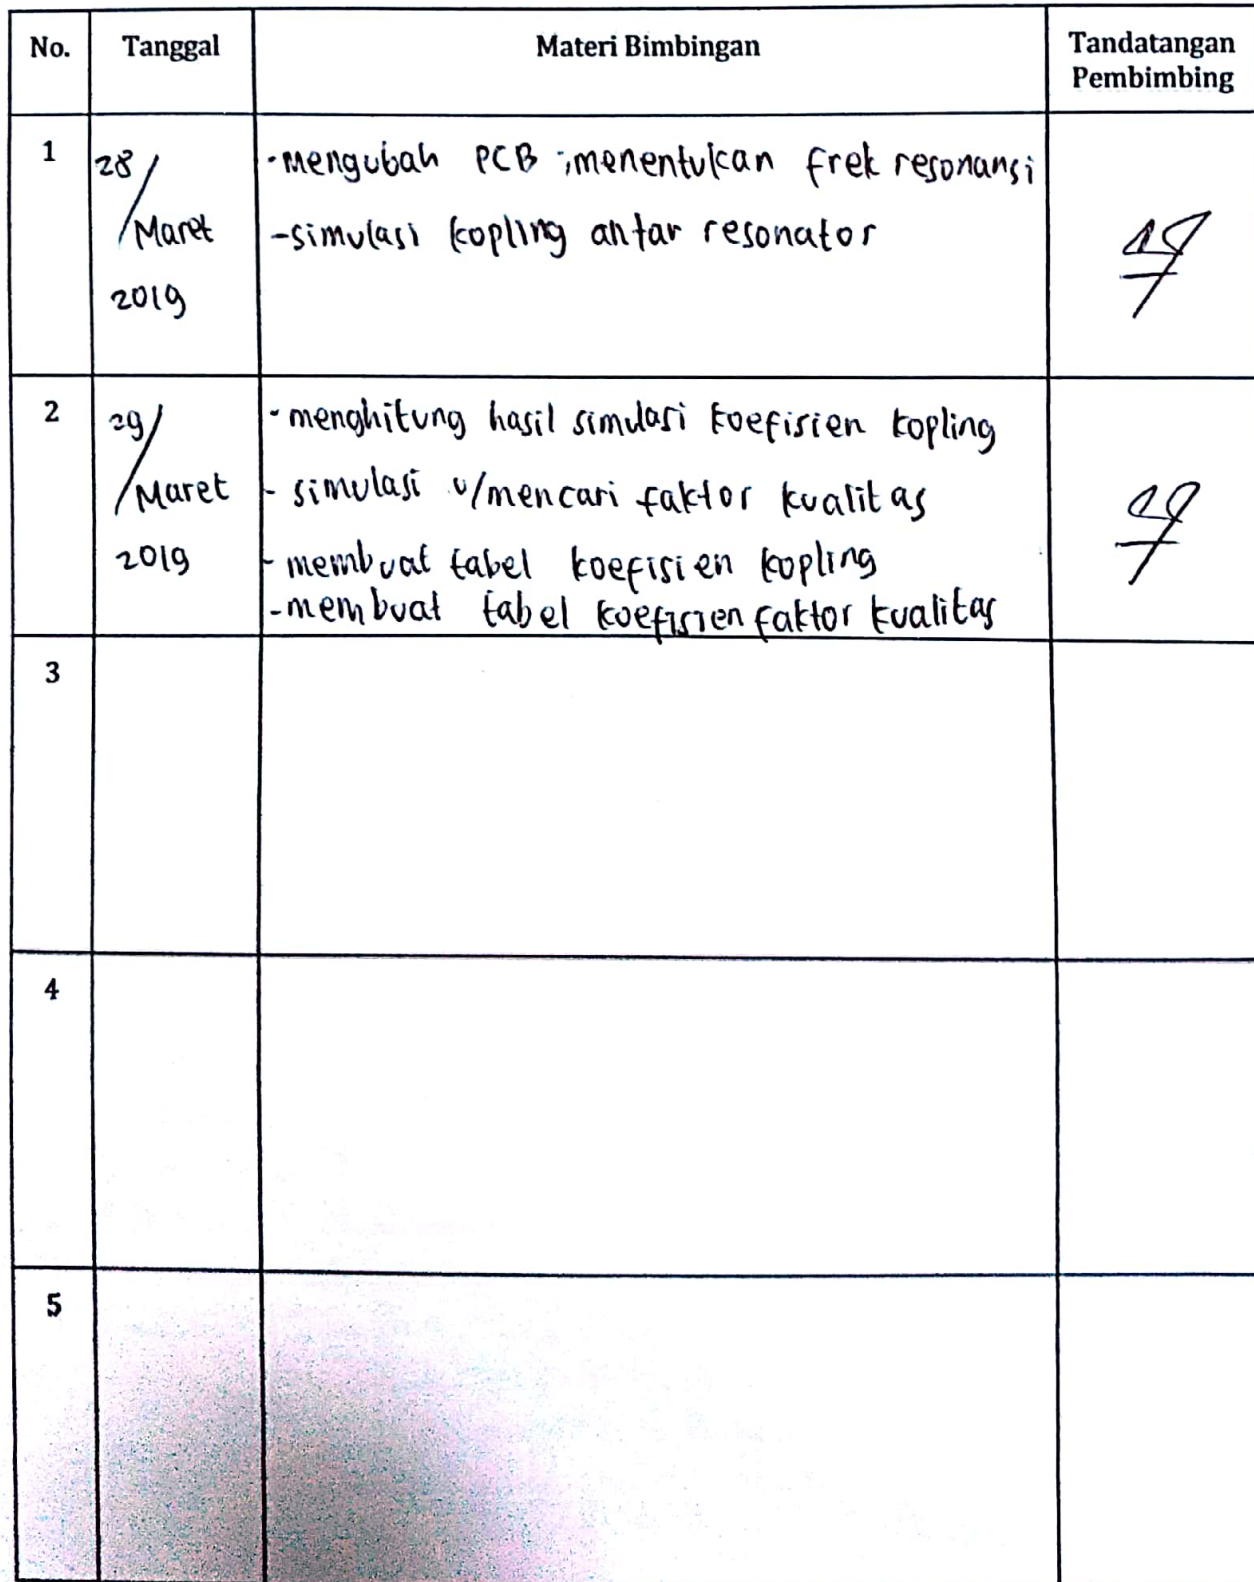 No. Tanggal Materi Bimbingan Tandatangan
Pembimbing
1 28/ -mengubah PCB ;menentukan frek resonansi
Maret -simulasi kopling antar resonator
2019
2 29/ -menghitung hasil simulasi koefisien kopling
Maret - simulasi u/mencari faktor kualitas
2019 - membuat tabel koefisien kopling
-membuat tabel koefisien faktor kualitas
3
4
5